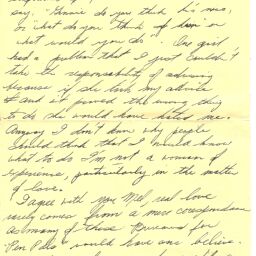 say. "Gennie do you think he's nice,
or "what do you think of him" or
what would you do". One girl
had a problem that I just couldn't
take the responsability of advising
because if she took my advice
& and it proved the wrong thing
to do she would have hated me.
Anyway I don't know why people
should think that I would know
what to do I'm not a woman of
experience, particularly in the matter
of love.
I agree with you Mel, real love
rarely comes from a mere corespondance
as many of these Bureaus for
"Pen Pals" would have one believe.